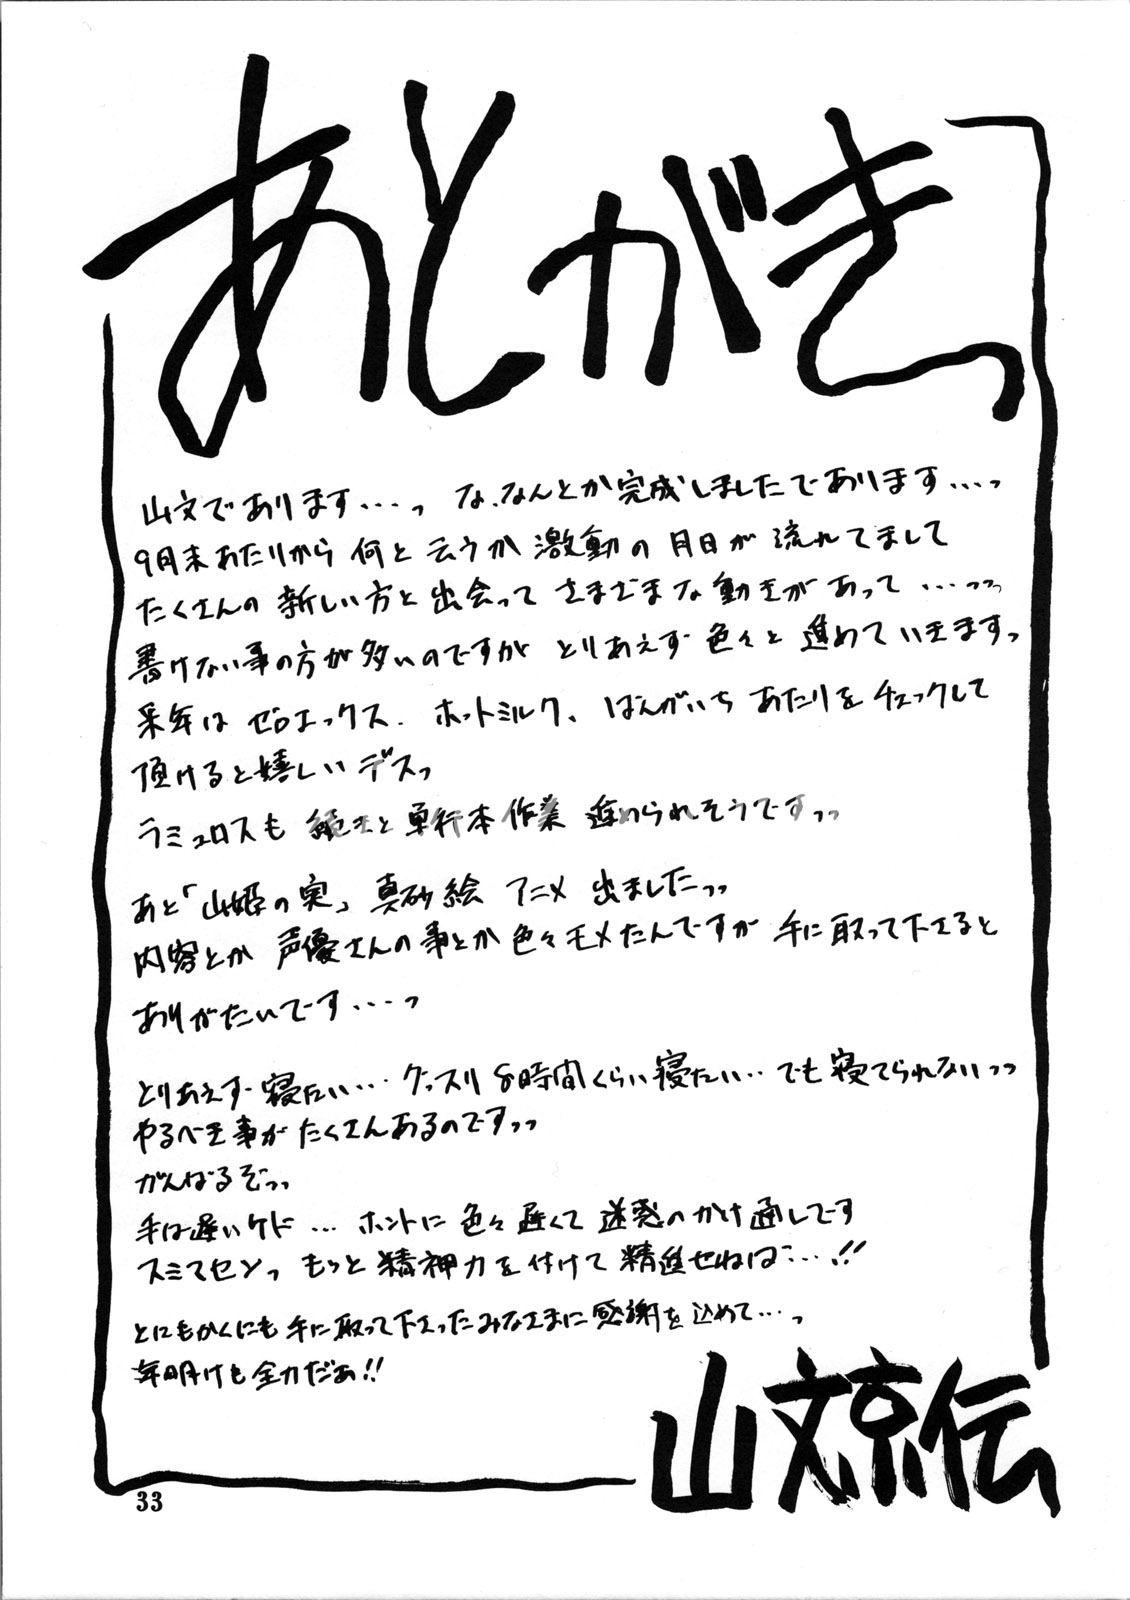 あとがきっ
山文であります・・・っ な、なんとか完成しましたであります・・・っ
9月末あたりから何と云うか激動の月日が流れてまして
たくさんの新しい方と出会ってさまざまな動きがあって・・・っっ
書けない事の方が多いのですがとりあえず色々と進めていきますっ
来年はゼロエックス、ホットミルク、ばんがいちあたりをチェックして
頂けると嬉しいデスっ
ラミュロスも続きと単行本作業進められそうですっっ
あと「山姫の実」真砂絵アニメ出ましたっっ
内容とか声優さんの事とか色々モメたんですが手に取って下さると
ありがたいです・・・っ
とりあえず寝たい・・・グッスリ8時間くらい寝たい・・でも寝てられないっっ
やるべき事がたくさんあるのですっっ
がんばるぞっっ
手は遅いケド・・・ホントに色々遅くて迷惑のかけ通しです
スミマセンっ もっと精神力を付けて精進せねば・・・!!
とにもかくにも手に取って下さったみなさまに感謝を込めて・・・っ
年明けも全力だぁ!!
山文京伝
33